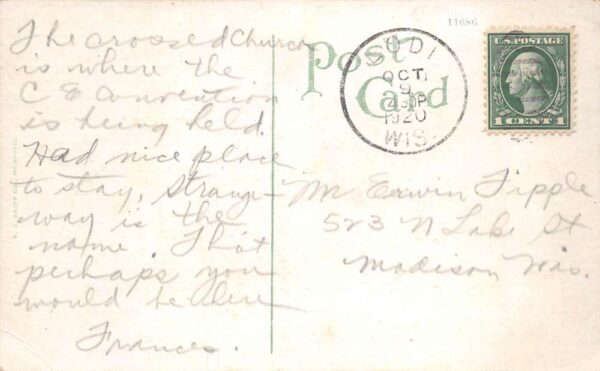 11686
Post
Card
LODI
OCT
9
430P
1920
WIS.
U.S. POSTAGE
1 CENT 1
The crossed Church
is where the
C E Convention
is being held.
Had nice place
to stay, Strange-
way is the
name. Thot
perhaps you
would be here
Frances.
Mr Erwin Tipple
523 N Lake St
Madison Wis.